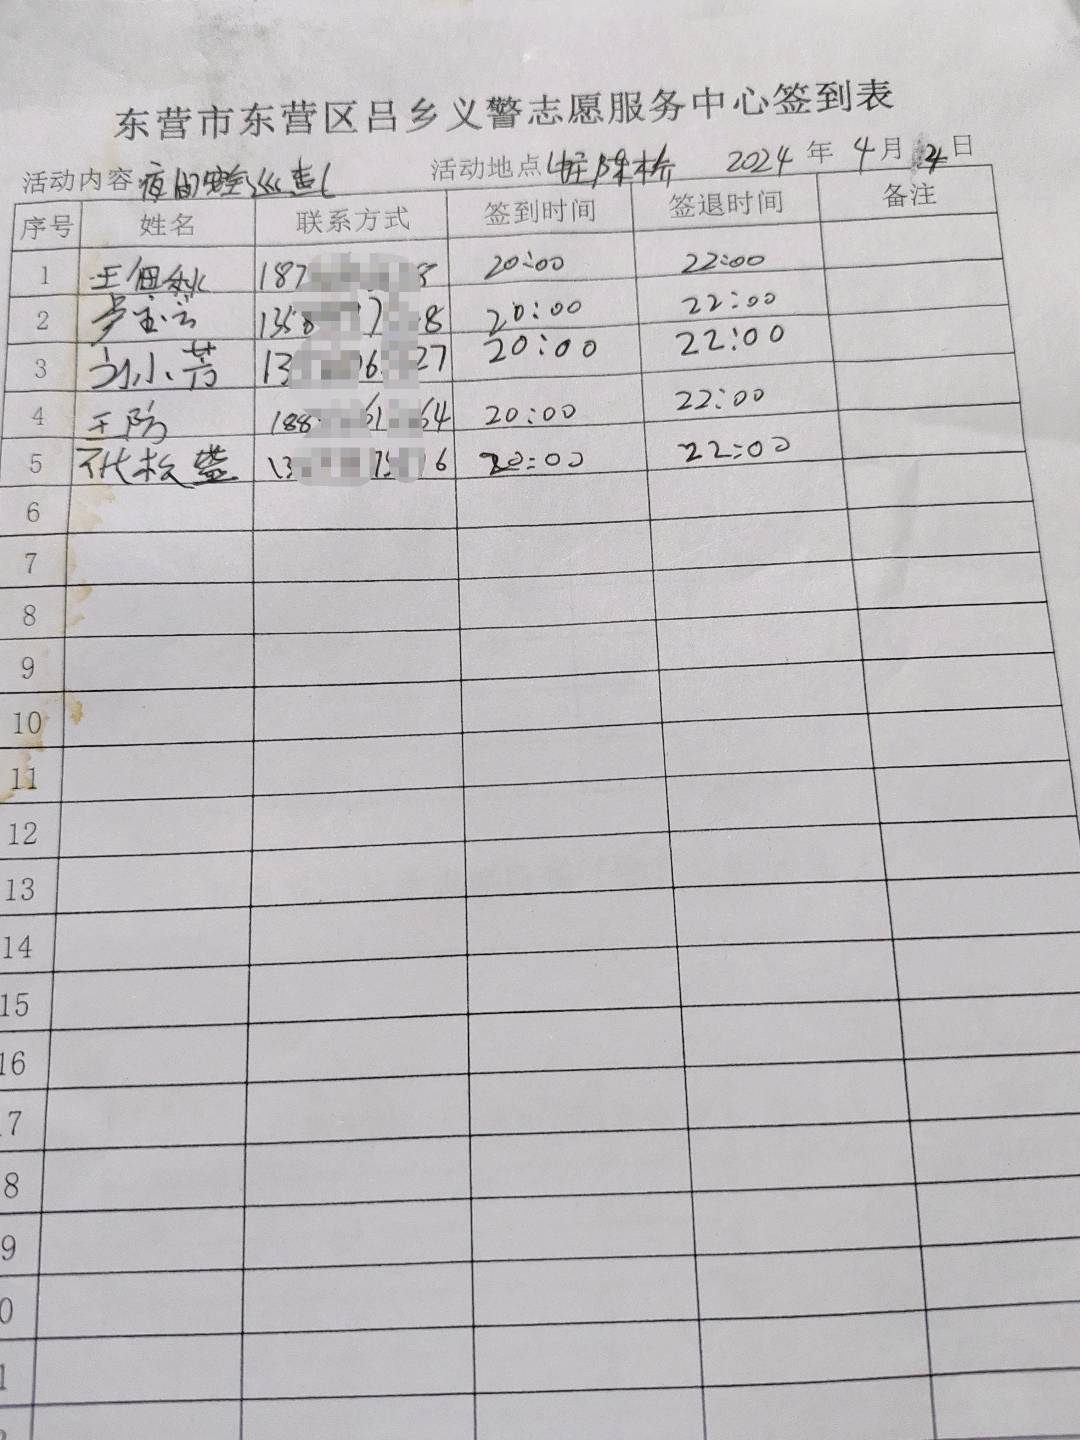 东营市东营区吕乡义警志愿服务中心签到表
活动内容 夜间 巡 活动地点 桥 2024年4月 日
序号 姓名 联系方式 签到时间 签退时间 备注
1 王 秋 187 20:00 22:00
2 卢 云 1358 7 8 20:00 22:00
3 刘小芳 13 06 27 20:00 22:00
4 王防 188 61 64 20:00 22:00
5 代 盛 13 75 6 20:00 22:00
6
7
8
9
10
11
12
13
14
15
16
7
8
9
0
1